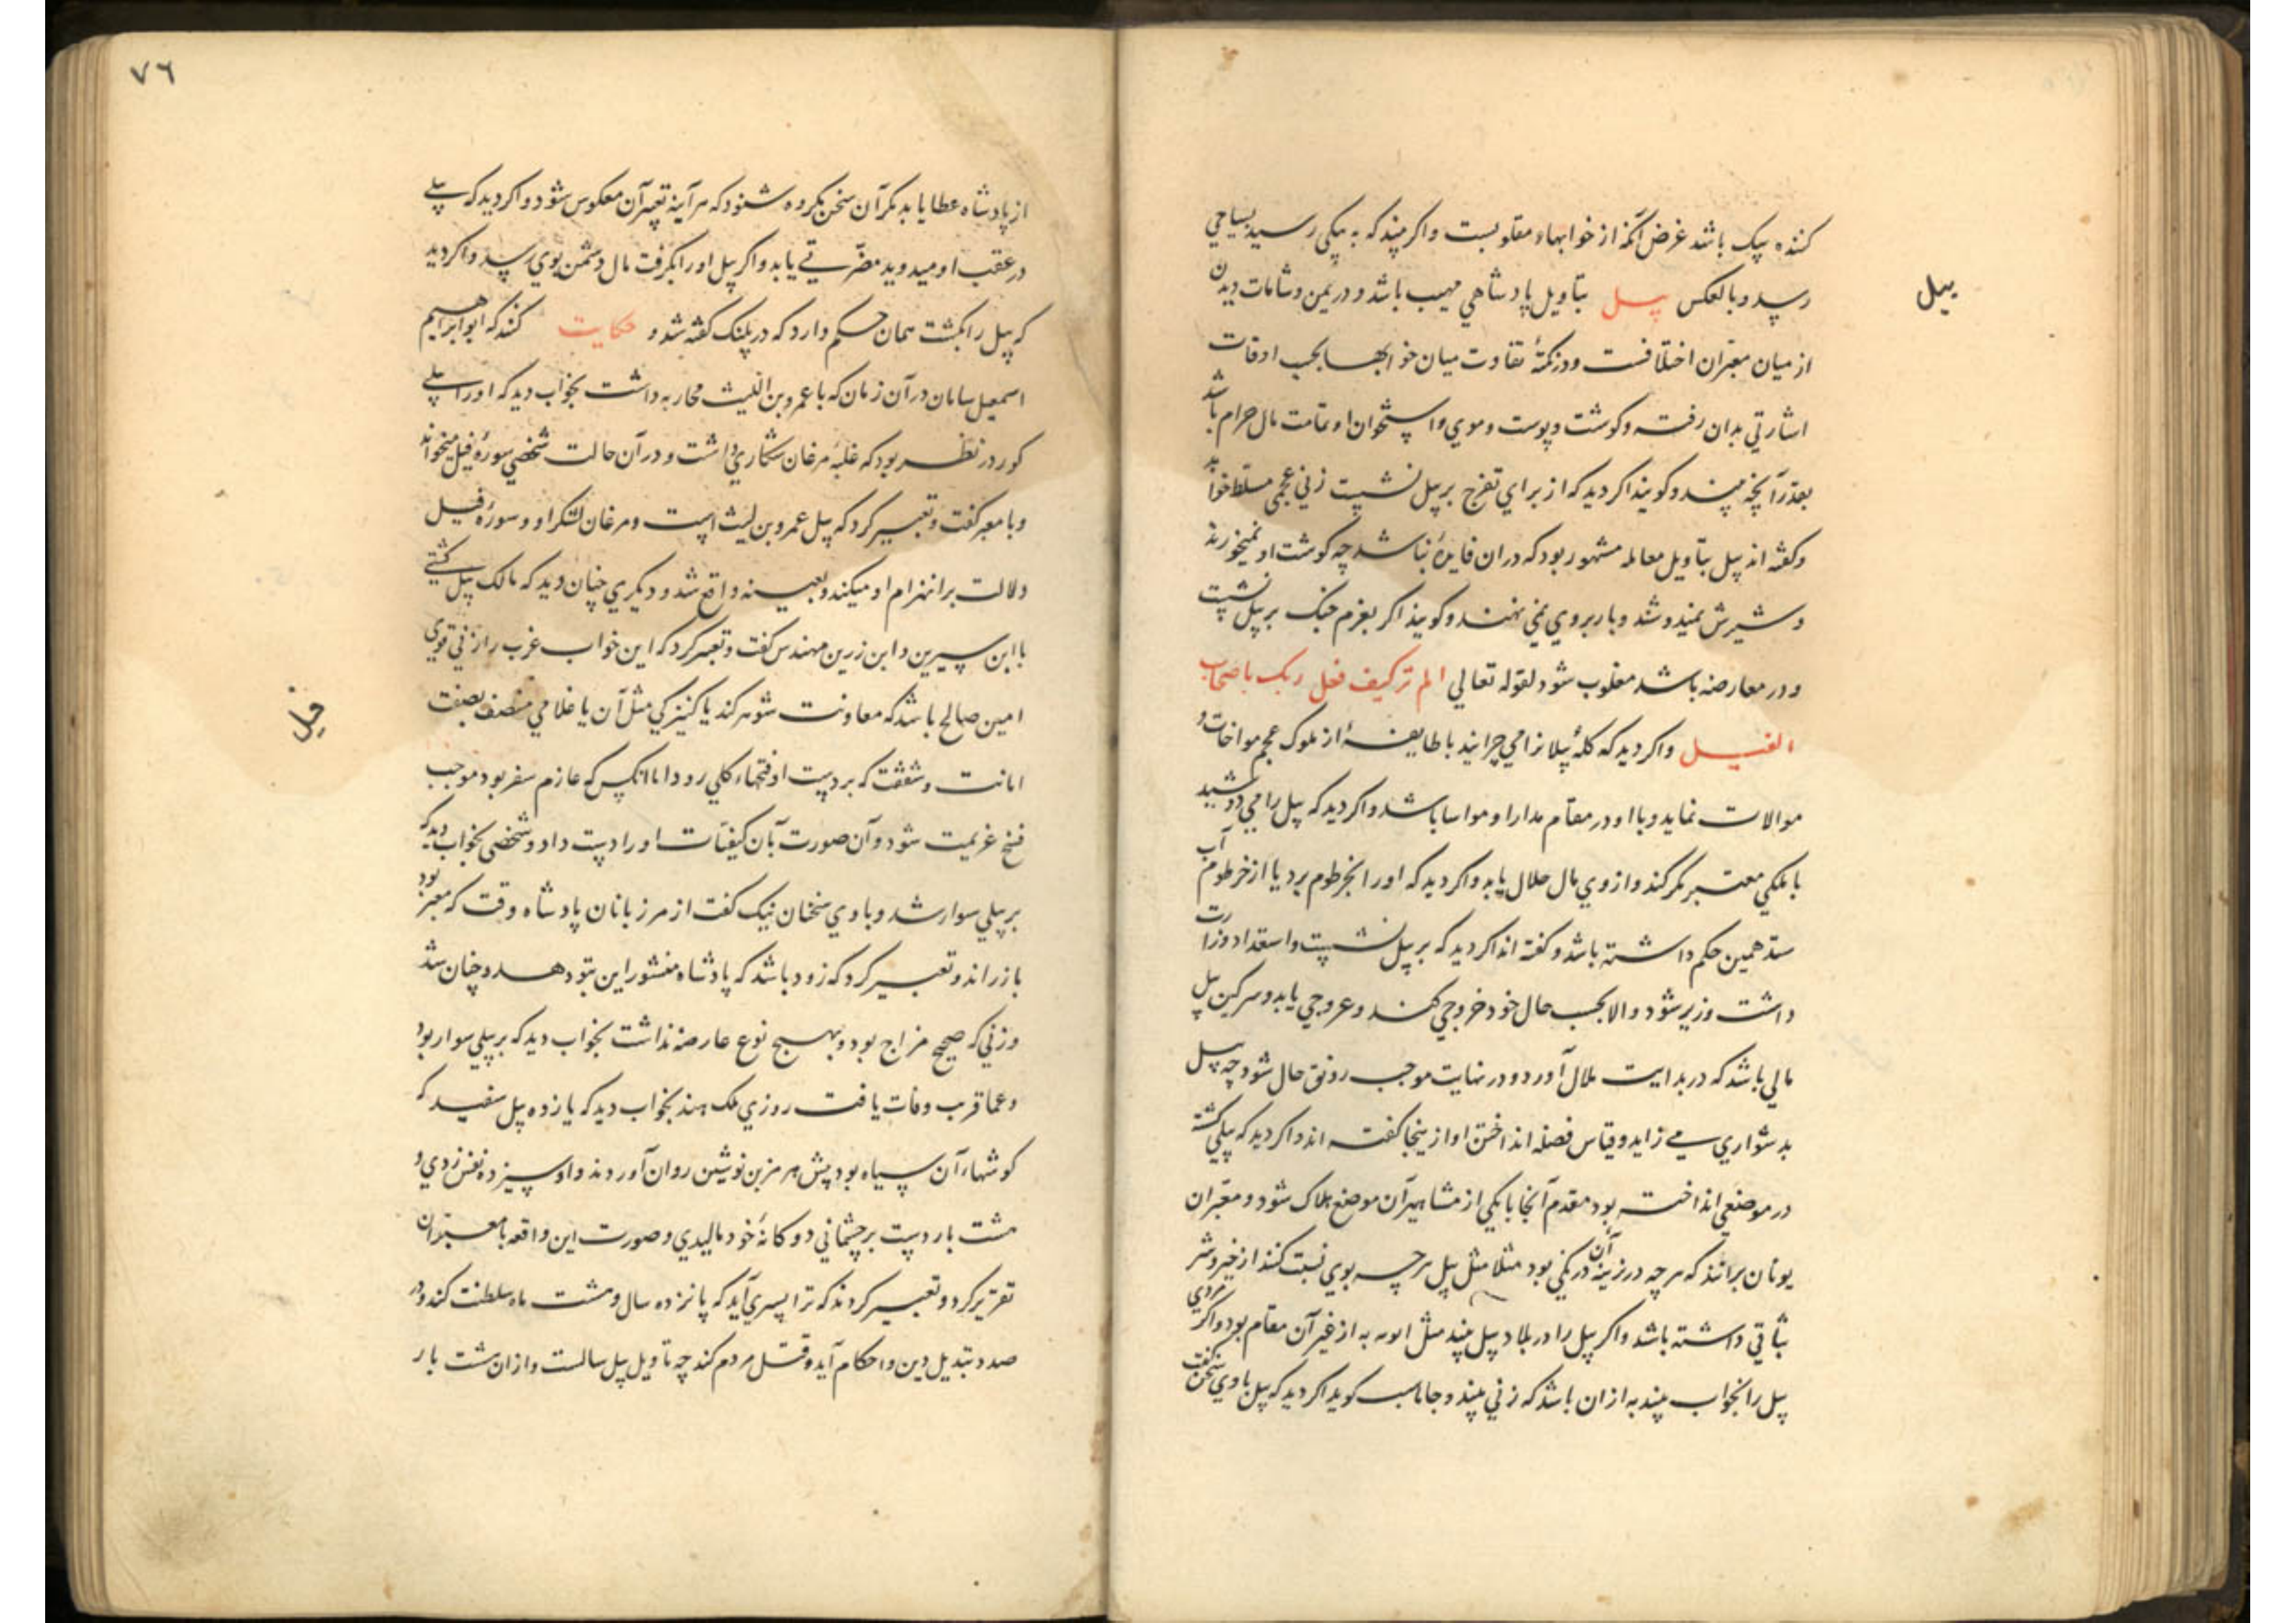 کننده پیک باشد غرض آنکه از خوابهاء مقلوبست واکر بیند که به پیکی رسید بسیاحی
رسید وبالعکس پیل بتاویل پادشاهی مهیب باشد و در یمن و شامات دیدن
پیل
از میان معبران اختلافست و در نکتهٔ تفاوت میان خوابها بحسب اوقات
اشارتی بدان رفته وکوشت وپوست وموی واستخوان او تمامت مال حرام باشد
بقدر آنچه بیند وکویند اکر دید که از برای تفرج بر پیل نشست زنی عجمی مسلط خواهد
وکفته اند پیل بتاویل معامله مشهور بود که دران فایدهٔ نباشد چه کوشت او نمیخورند
وشیرش نمیدوشند وبار بروی نمی نهند وکویند اکر بعزم جنک بر پیل نشست
ودر معارضه باشد مغلوب شود لقوله تعالی الم تر کیف فعل ربک باصحاب
الفیل واکر دید که کلهٔ پیلانرا می چراند با طایفهٔ از ملوک عجم مواخات و
موالات نماید وبا او در مقام مدارا و مواسا باشد واکر دید که پیل را می دوشید
با ملکی معتبر مکر کند وازوی مال حلال یابد واکر دید که اورا بخرطوم برد یا از خرطوم آب
ستد همین حکم داشته باشد وکفته اند اکر دید که بر پیل نشست واستعداد وزارت
داشت وزیر شود والا بحسب حال خود خروجی کند وعروجی یابد وسرکین پیل
مالی باشد که در بدایت ملال آورد ودر نهایت موجب رونق حال شود چه پیل
بدشواری می زاید وقیاس فضله انداختن او از ینجا کفته اند واکر دید که پیلی کشته
در موضعی انداخته بود مقدم آنجا یا یکی از مشاهیر آن موضع هلاک شود و معبران
یونان برانند که هرچه در زینه آن درنکی بود مثلا مثل پیل هرچه بوی نسبت کنند از خیر وشر
ثباتی داشته باشد واکر پیل را در بلاد پیل بیند مثل به از غیر آن مقام بود واکر مردی
پیل را بخواب بیند به ازان باشد که زنی بیند وجاماسب کوید اکر دید که پیل باوی سخن کفت
٧٦
از پادشاه عطا یابد مکر آن سخن مکروه شنود که هر آینه تعبیر آن معکوس شود واکر دید که پیلی
در عقب او میدوید مضرتی یابد واکر پیل اورا بکرفت مال دشمن بوی رسد واکر دید
که پیل را بکشت همان حکم دارد که در پلنک کفته شد و حکایت کنند که ابو ابراهیم
اسمعیل سامان در آن زمان که با عمرو بن اللیث محاربه داشت بخواب دید که اورا پیلی
کور در نظر بود که غلبهٔ مرغان شکاری داشت و در آن حالت شخصی سورهٔ فیل میخواند
وبا معبر کفت وتعبیر کرد که پیل عمرو بن لیث است ومرغان لشکر او وسورهٔ فیل
دلالت بر انهزام او میکند وبعینه واقع شد و دیکری چنان دید که مالک پیل کشتی
با ابن سیرین و ابن زرین مهندس کفت وتعبیر کرد که این خواب عزب را زنی قوی
امین صالح باشد که معاونت شوهر کند یا کنیزکی مثل آن یا غلامی متصف بصفت
فیل
امانت وشفقت که بر دست او فتحهاء کلی رود اما آنکس که عازم سفر بود موجب
فسخ عزیمت شود وآن صورت بآن کیفیات اورا دست داد وشخصی بخواب دید که
بر پیلی سوار شد وباوی سخنان نیک کفت از مرزبانان پادشاه وقت که معبر بود
باز راند وتعبیر کرد که زود باشد که پادشاه منشور این بتو دهد وچنان شد
وزنی که صحیح مزاج بود وبهیچ نوع عارضه نداشت بخواب دید که بر پیلی سوار بود
وعما قریب وفات یافت روزی ملک هند بخواب دید که یازده پیل سفید که
کوشهاء آن سیاه بود پیش هرمز بن نوشین روان آوردند واو سیزده نفس زدی و
هشت بار دست بر چشمانی دوکانهٔ خود مالیدی وصورت این واقعه با معبران
تقریر کرد وتعبیر کردند که ترا پسری آید که پانزده سال وهشت ماه سلطنت کند ودر
صدد تبدیل دین واحکام آید وقتل مردم کند چه تاویل پیل سالست وازان هشت بار